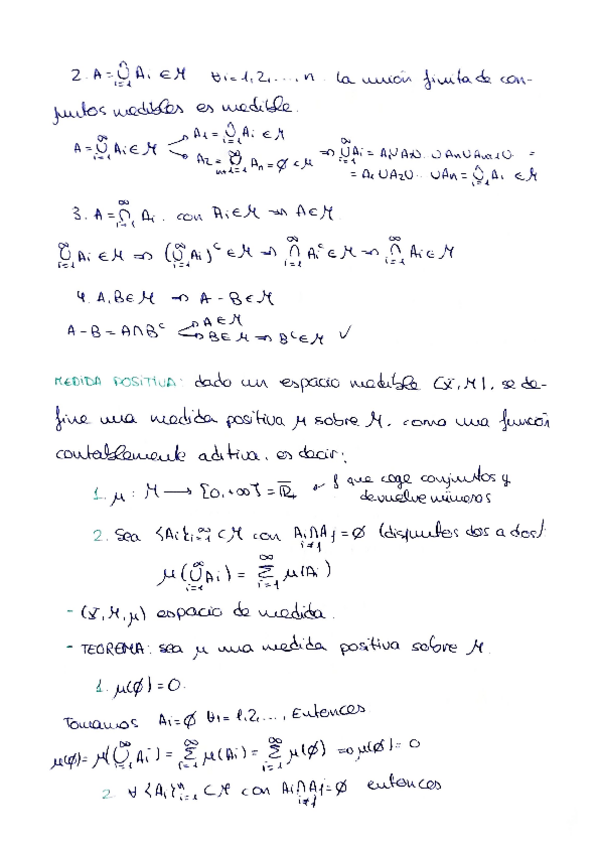 2. A = ⋃_{i=1}^{n} Ai ∈ M ∀i = 1, 2, ..., n. La unión finita de con-
juntos medibles es medible.
A = ⋃_{i=1}^{∞} Ai ∈ M → A1 = ⋃_{i=1}^{n} Ai ∈ M ⇒ ⋃_{i=1}^{∞} Ai = A1∪A2∪..∪An∪An+1∪.. =
→ A2 = ⋃_{n+1=1}^{∞} An = ∅ ∈ M = A1∪A2∪..∪An = ⋃_{i=1}^{n} Ai ∈ M
3. A = ⋂_{i=1}^{∞} Ai. con Ai ∈ M ⇒ A ∈ M.
⋃_{i=1}^{∞} Ai ∈ M ⇒ (⋃_{i=1}^{∞} Ai)^c ∈ M ⇒ ⋂_{i=1}^{∞} Ai^c ∈ M ⇒ ⋂_{i=1}^{∞} Ai ∈ M
4. A, B ∈ M ⇒ A - B ∈ M
A - B = A∩B^c → A ∈ M
→ B ∈ M ⇒ B^c ∈ M ✓
MEDIDA POSITIVA: dado un espacio medible (X, M), se de-
fine una medida positiva μ sobre M, como una función
contablemente aditiva, es decir:
1. μ: M → [0, +∞] = ℝ̅₊ ← f que coge conjuntos y
devuelve números
2. Sea {Ai}_{i=1}^{∞} ⊂ M con Ai∩Aj = ∅ i≠j (disjuntos dos a dos):
μ(⋃_{i=1}^{∞} Ai) = ∑_{i=1}^{∞} μ(Ai)
- (X, M, μ) espacio de medida.
- TEOREMA: sea μ una medida positiva sobre M.
1. μ(∅) = 0.
Tomamos Ai = ∅ ∀i = 1, 2, ..., Entonces
μ(∅) = μ(⋃_{i=1}^{∞} Ai) = ∑_{i=1}^{∞} μ(Ai) = ∑_{i=1}^{∞} μ(∅) ⇒ μ(∅) = 0
2. ∀ {Ai}_{i=1}^{n} ⊂ M con Ai∩Aj = ∅ i≠j entonces